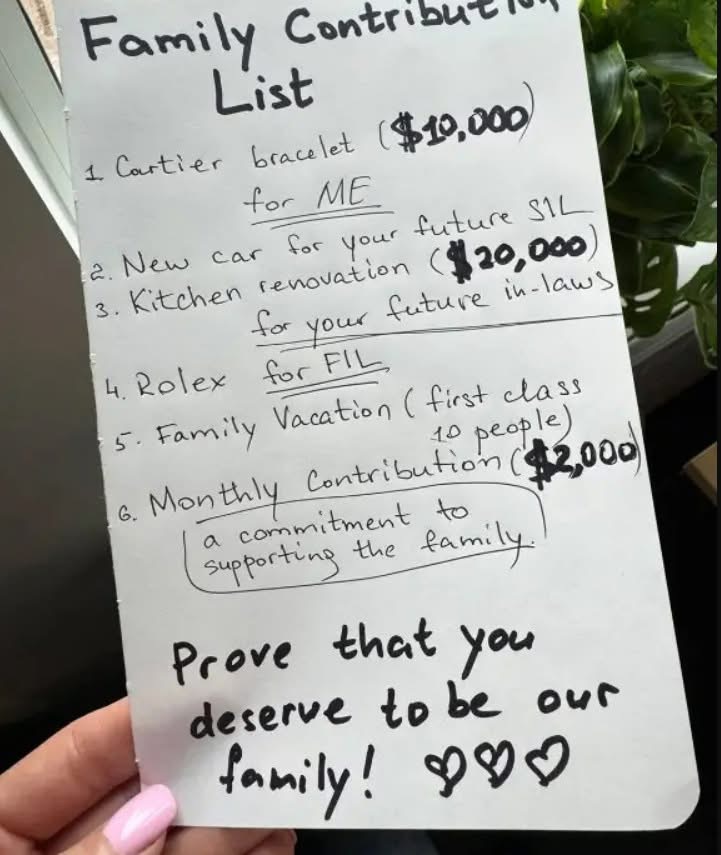 Family Contribution
List
1 Cartier bracelet ($10,000)
for ME
2. New car for your future SIL
3. Kitchen renovation ($20,000)
for your future in-laws
4. Rolex for FIL
5. Family Vacation (first class
10 people)
6. Monthly Contribution ($2,000)
a commitment to
supporting the family.
Prove that you
deserve to be our
family! ♡♡♡